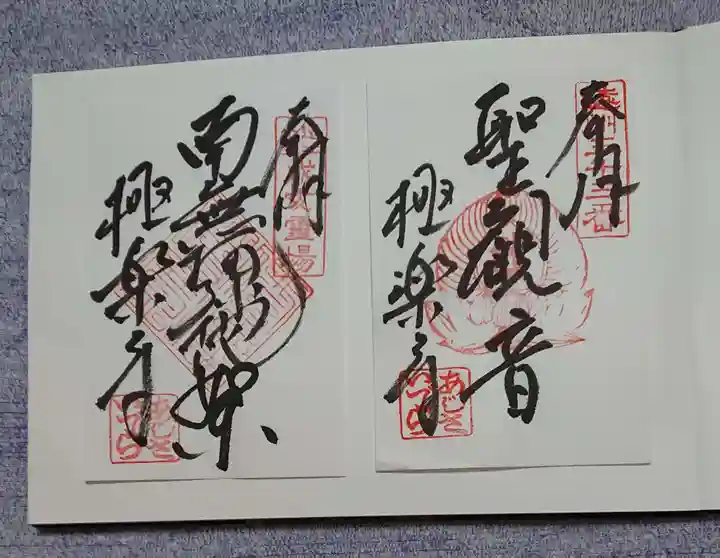 奉拝
聖観音
極楽寺
あじさ
いでら
奉拝
霊場
南無
極楽寺
あじさ
いでら